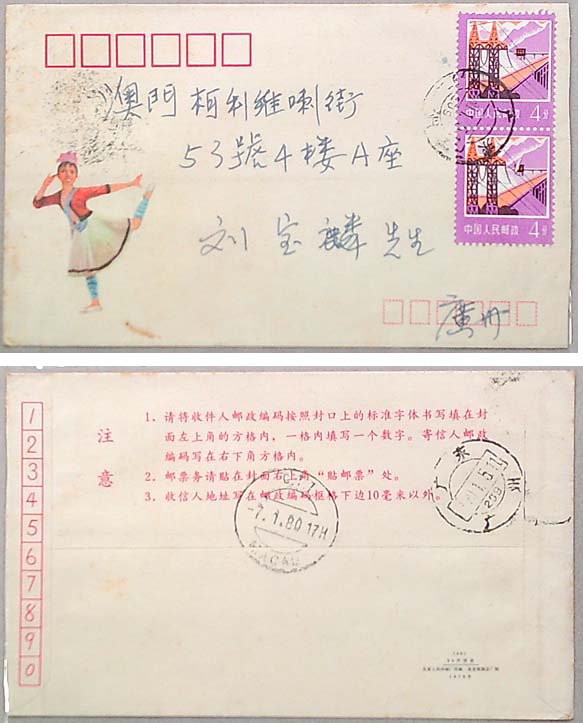 澳門柏利維喇街
53號4楼A座
刘宝麟先生
廣州
4分
中国人民邮政
4分
中国人民邮政
1
2
3
4
5
6
7
8
9
0
注意
1、请将收件人邮政编码按照封口上的标准字体书写填在封
面左上角的方格内，一格内填写一个数字。寄信人邮政
编码写在右下角方格内。
2、邮票务请贴在封面右上角“贴邮票”处。
3、收信人地址写在邮政编码框格下边10毫米以外。
-7.1.80 17H
MACAU
广东
广州